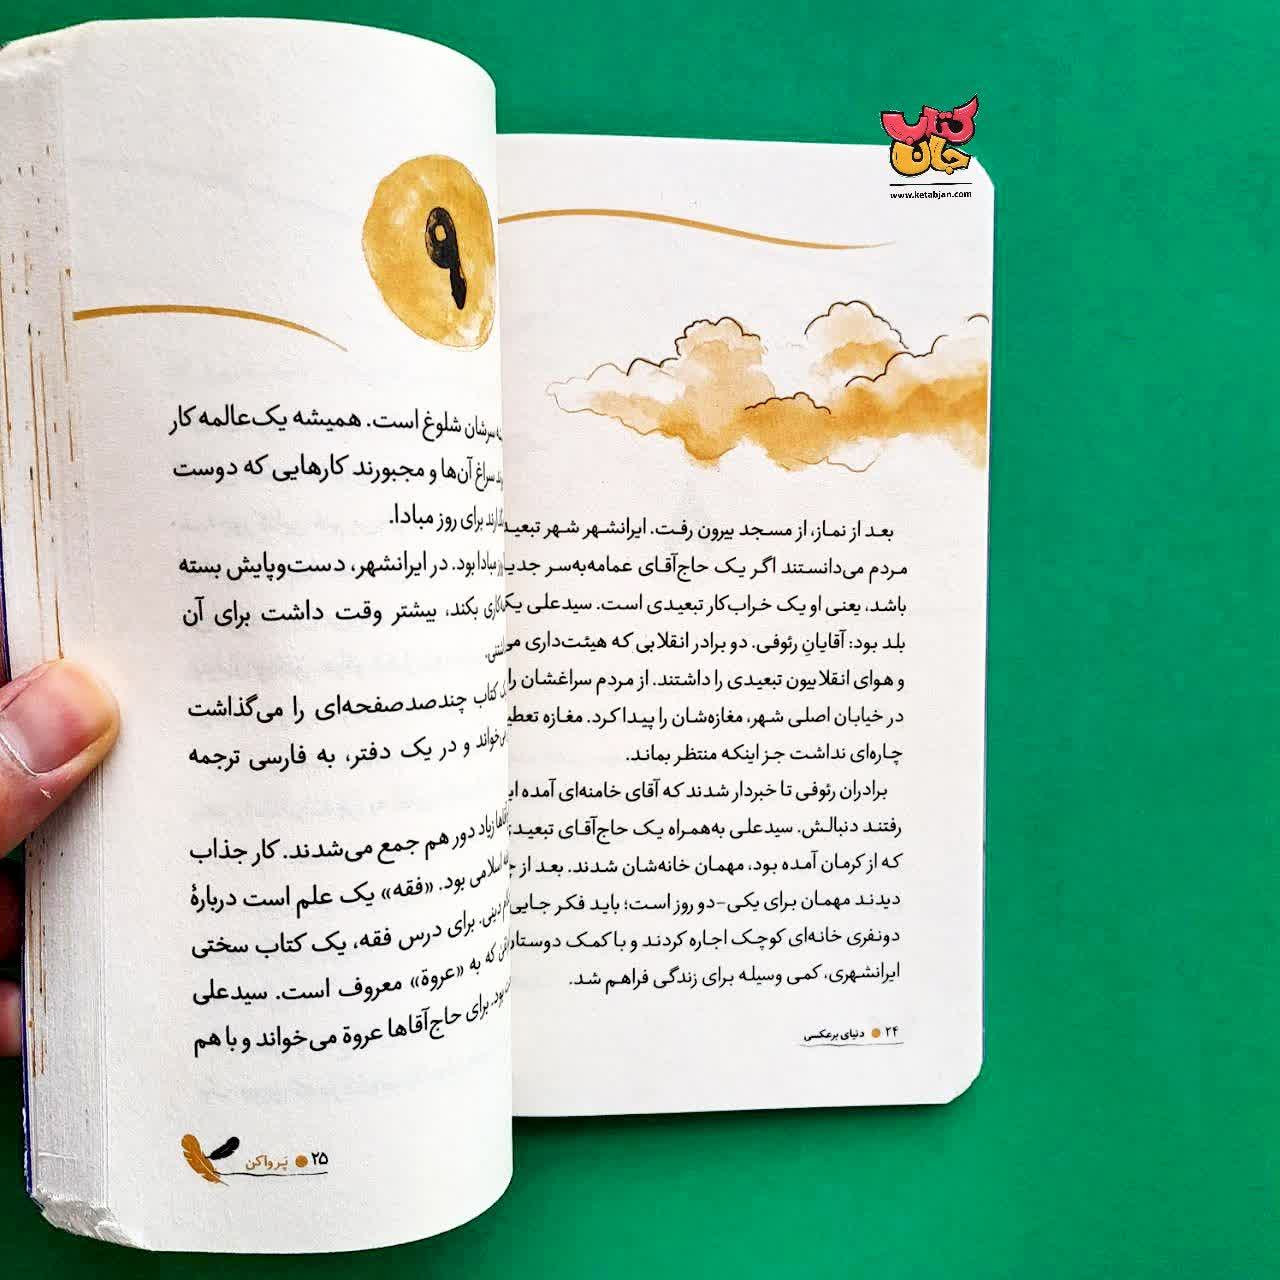 کتاب
جان
www.ketabjan.com
بعد از نماز، از مسجد بیرون رفت. ایرانشهر شهر
مردم می‌دانستند اگر یک حاج‌آقای عمامه‌به‌سر
باشد، یعنی او یک خراب‌کار تبعیدی است. سیدعلی
بلد بود: آقایانِ رئوفی. دو برادر انقلابی که هیئت‌داری
و هوای انقلابیون تبعیدی را داشتند. از مردم سراغشان را
در خیابان اصلی شهر، مغازه‌شان را پیدا کرد. مغازه
چاره‌ای نداشت جز اینکه منتظر بماند.
برادران رئوفی تا خبردار شدند که آقای خامنه‌ای آمده
رفتند دنبالش. سیدعلی به‌همراه یک حاج‌آقای
که از کرمان آمده بود، مهمان خانه‌شان شدند. بعد از
دیدند مهمان برای یکی-دو روز است؛ باید فکر
دونفری خانه‌ای کوچک اجاره کردند و با کمک
ایرانشهری، کمی وسیله برای زندگی فراهم شد.
۲۴ ● دنیای برعکسی
۹
سرشان شلوغ است. همیشه یک‌عالمه کار
سراغ آن‌ها و مجبورند کارهایی که دوست
برای روز مبادا.
مبادا بود. در ایرانشهر، دست‌وپایش بسته
بکند، بیشتر وقت داشت برای آن
کتاب چندصدصفحه‌ای را می‌گذاشت
و در یک دفتر، به فارسی ترجمه
زیاد دور هم جمع می‌شدند. کار جذاب
اسلامی بود. «فقه» یک علم است دربارهٔ
دینی. برای درس فقه، یک کتاب سختی
که به «عروة» معروف است. سیدعلی
بود. برای حاج‌آقاها عروة می‌خواند و با هم
۲۵ ● پَر واکن